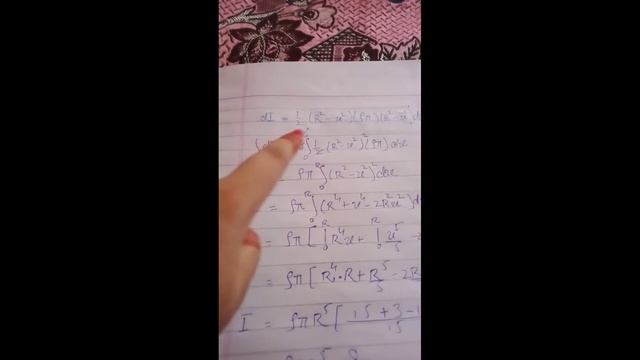 dI = 1/2 (R² - x²)(ρπ)(R² - x²) d
∫ ∫₀ 1/2 (R² - x²)² (ρπ) dx
= ρπ ∫₀ᴿ (R² - x²)² dx
= ρπ ∫₀ᴿ (R⁴ + x⁴ - 2R²x²) d
= ρπ [ |₀ᴿ R⁴x + |₀ᴿ x⁵/5 -
= ρπ [ R⁴·R + R⁵/5 - 2R
I = ρπR⁵ [ 15 + 3 - 1 / 15